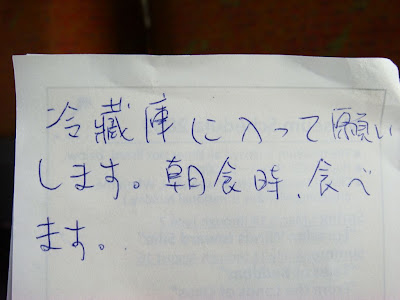 冷藏庫に入って願い
します。朝食時、食べ
ます。